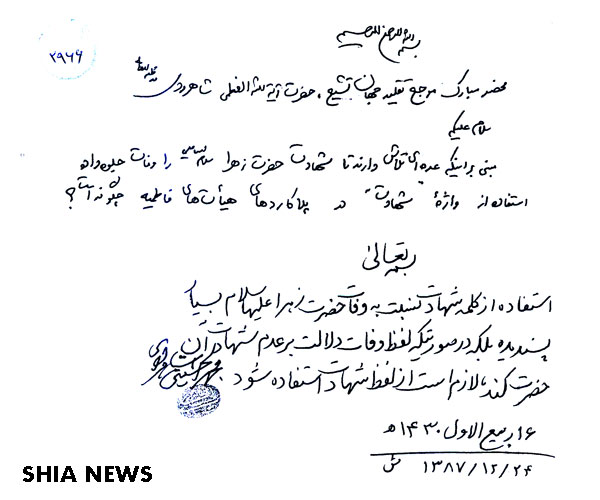 بسم الله الرحمن الرحیم
۲۹۶۶
محضر مبارک مرجع تقلید جهان تشیع ، حضرت آیة الله العظمی شاهرودی
سلام علیکم
مبنی بر اینکه عده ای تلاش دارند تا شهادت حضرت زهرا سلام الله علیها را وفات جلوه داده
استفاده از واژهٔ "شهادت" در پلاکاردهای هیأت‌های فاطمیه چگونه است؟
بسمه تعالی
استفاده از کلمه شهادت نسبت به وفات حضرت زهرا علیها سلام بسیار
پسندیده بلکه در صورتیکه لفظ وفات دلالت بر عدم شهادت آن
حضرت کند، لازم است از لفظ شهادت استفاده شود
۱۶ ربیع الاول ۱۴۳۰ ه
۱۳۸۷/۱۲/۲۴ ش
SHIA NEWS